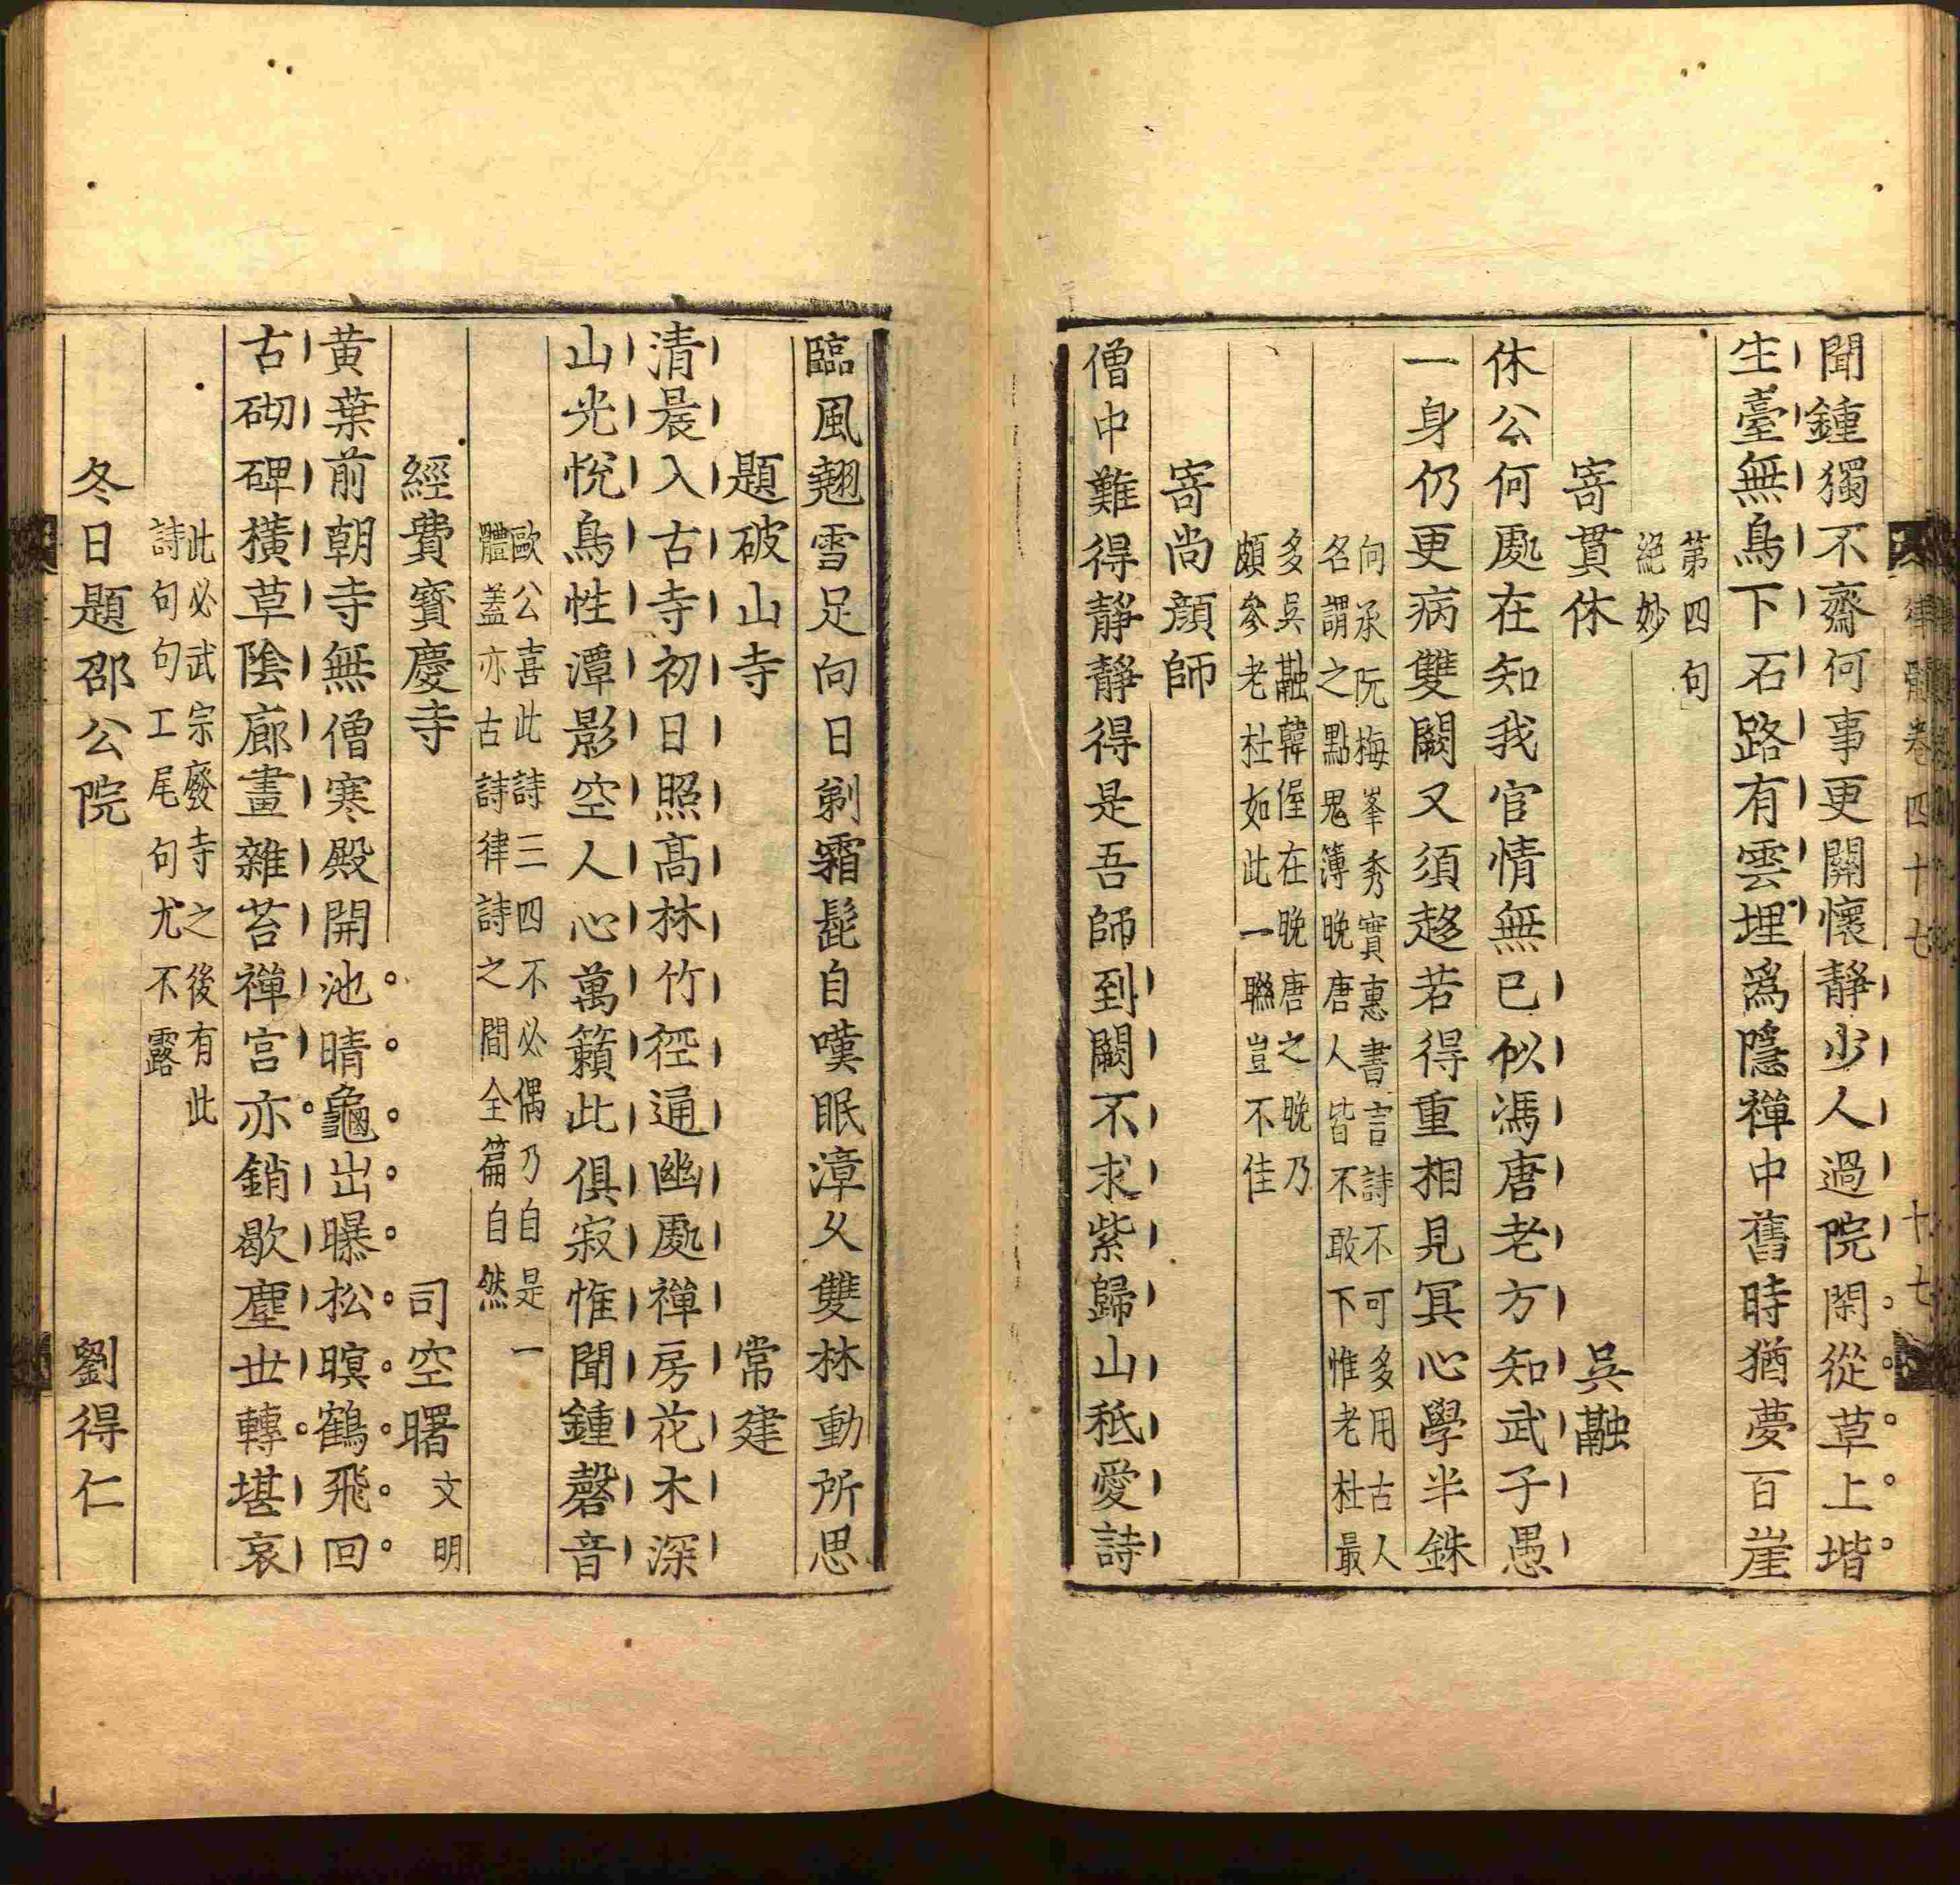 聞鍾獨不齋何事更開懷靜少人過院閑從草上堦
生臺無鳥下石路有雲埋爲隱禪中舊時猶夢百崖
第四句
絕妙
寄貫休
吳融
休公何處在知我官情無已似馮唐老方知武子愚
一身仍更病雙闕又須趍若得重相見冥心學半銖
向承阮梅峯秀實惠書言詩不可多用古人
名謂之點鬼簿晚唐人皆不敢下惟老杜最
多吳融韓偓在晚唐之晚乃
頗參老杜如此一聯豈不佳
寄尚顔師
僧中難得靜靜得是吾師到闕不求紫歸山秪愛詩
臨風翹雪足向日剃霜髭自嘆眠漳乆雙林動所思
題破山寺
常建
清晨入古寺初日照髙林竹徑通幽處禪房花木深
山光悅鳥性潭影空人心萬籟此俱寂惟聞鍾磬音
歐公喜此詩三四不必偶乃自是一
體蓋亦古詩律詩之間全篇自然
經費寳慶寺
司空曙
文明
黄葉前朝寺無僧寒殿開池晴龜出曝松暝鶴飛回
古砌碑橫草陰廊畫雜苔禪宫亦銷歇塵世轉堪哀
此必武宗廢寺之後有此
詩句句工尾句尤不露
冬日題邵公院
劉得仁
律髓卷四十七
十七